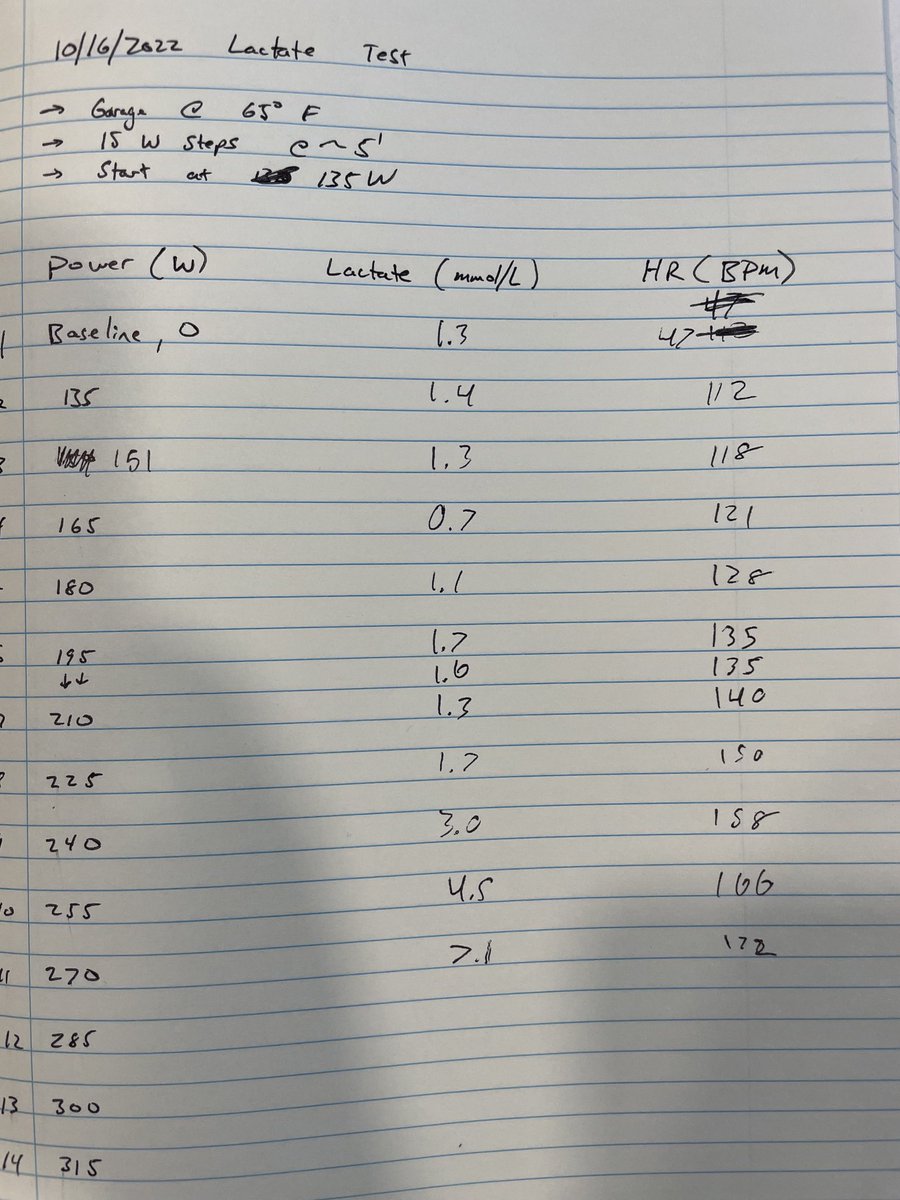 10/16/2022 Lactate Test
→ Garage @ 65° F
→ 15 W Steps @ ~ 5'
→ Start at 135 W
Power (W) Lactate (mmol/L) HR (BPM)
1 Baseline, 0 1.3 47
2 135 1.4 112
3 151 1.3 118
165 0.7 121
180 1.1 128
195 1.7 135
↓↓ 1.6 135
210 1.3 140
225 1.7 150
240 3.0 158
10 255 4.5 166
11 270 7.1 172
12 285
13 300
14 315